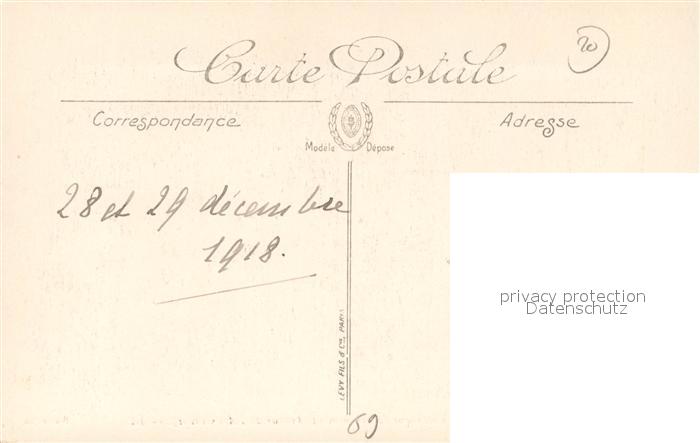 20
Carte Postale
Correspondance
Adresse
Modèle Déposé
28 et 29 décembre
1918.
privacy protection
Datenschutz
LEVY FILS & Cie, PARIS
69